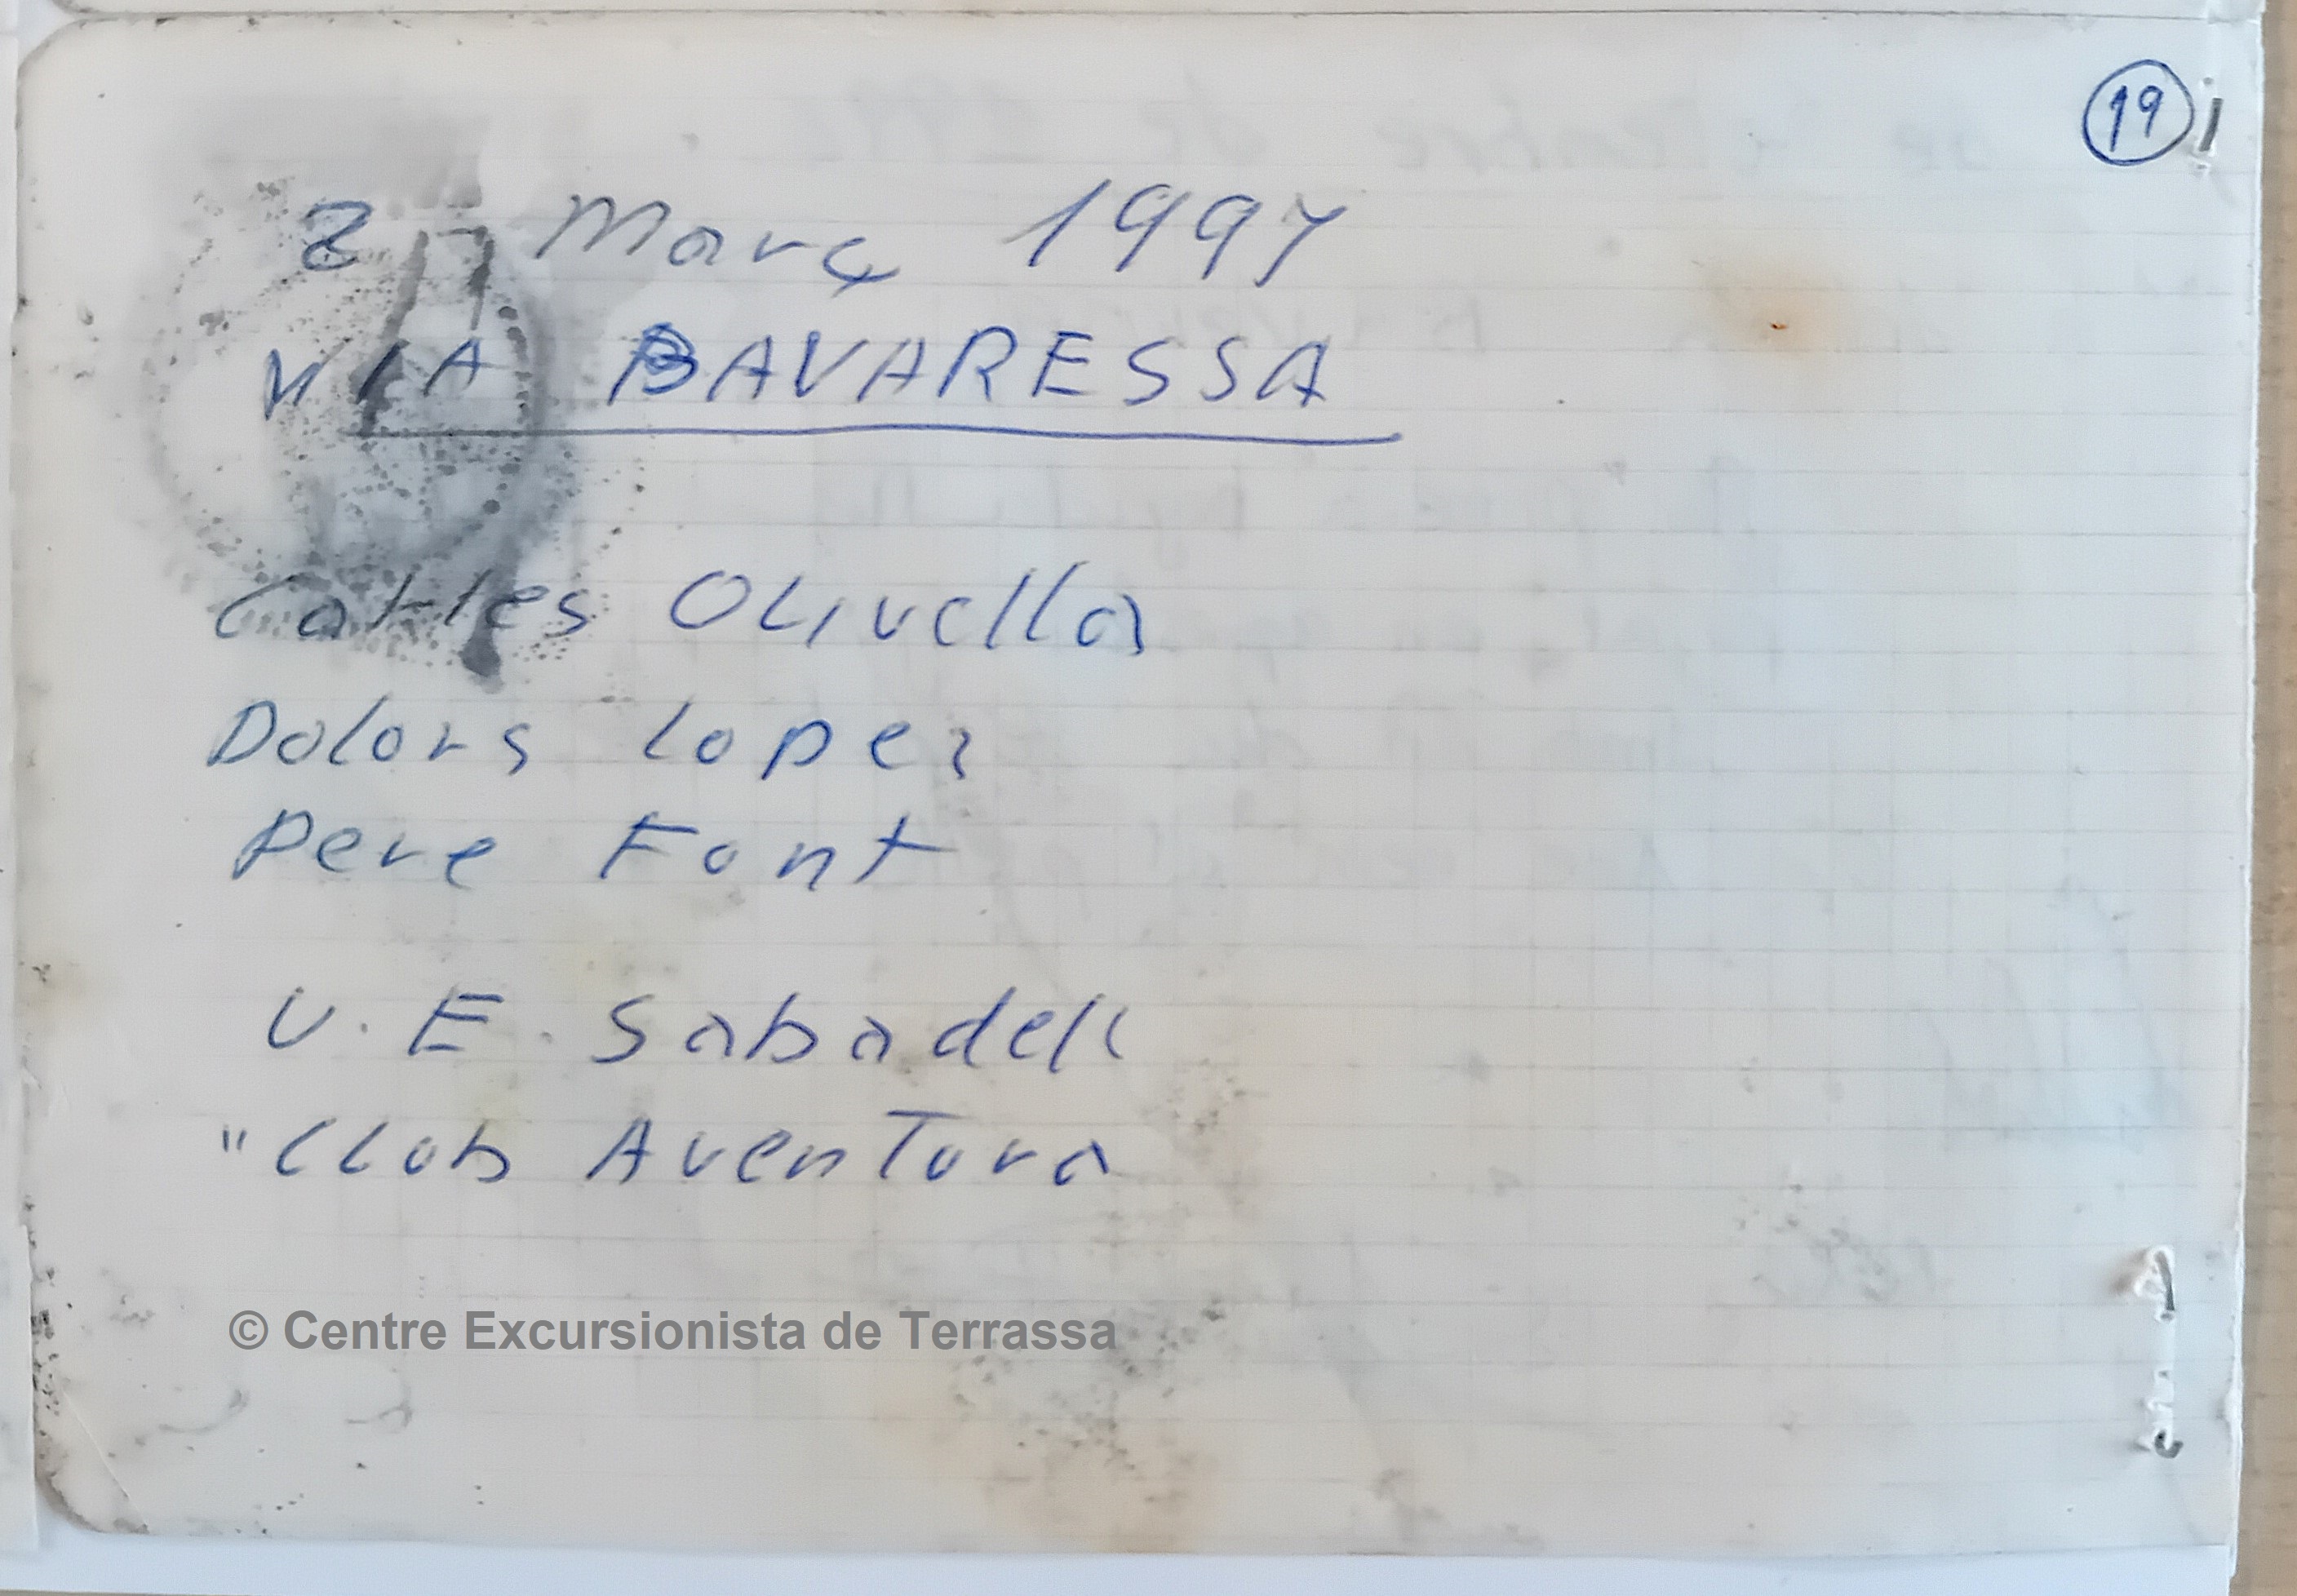 19
2 Març 1997
VIA BAVARESSA
Carles Olivella
Dolors Lopez
Pere Font
U. E. Sabadell
"Club Aventura
© Centre Excursionista de Terrassa